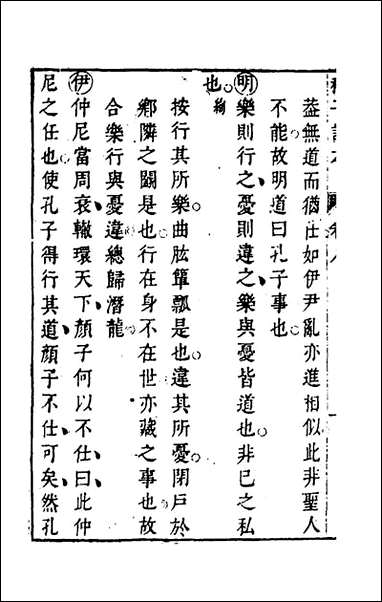 葢無道而猶仕如伊尹亂亦進相似此非聖人
不能故明道曰孔子事也
明 樂則行之憂則違之樂與憂皆道也非已之私
也 絢
按行其所樂曲肱簞瓢是也違其所憂閉戸於
鄕隣之鬭是也行在身不在世亦藏之事也故
合樂行與憂違總歸潛龍
伊 仲尼當周衰轍環天下顏子何以不仕曰此仲
尼之任也使孔子得行其道顏子不仕可矣然孔